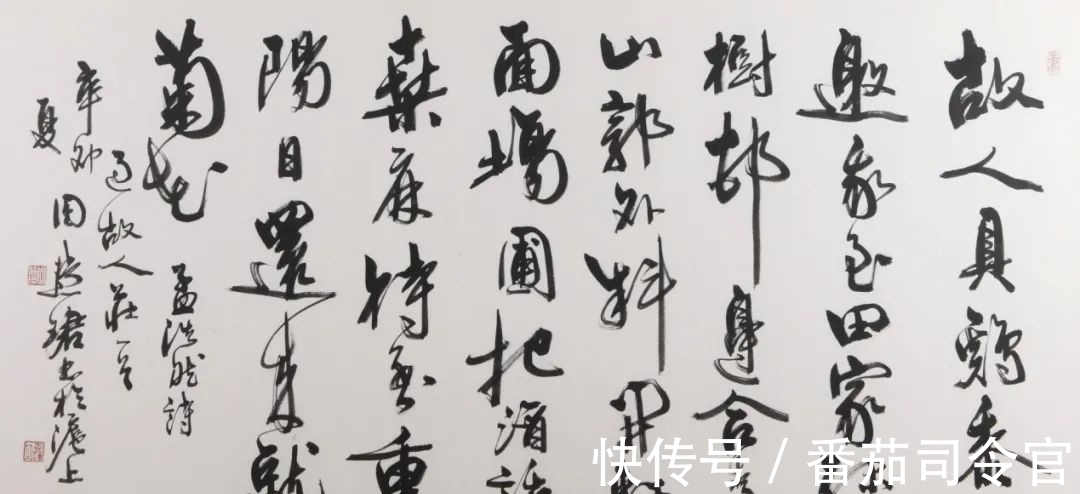 故人具鷄黍
邀我至田家
樹邨邊合
山郭外斜開
面場圃把酒話
桑麻待至重
陽日還來就
菊花
孟浩然詩
過故人莊一首
辛卯夏
田珺書於滬上
快传号 / 番茄司令官